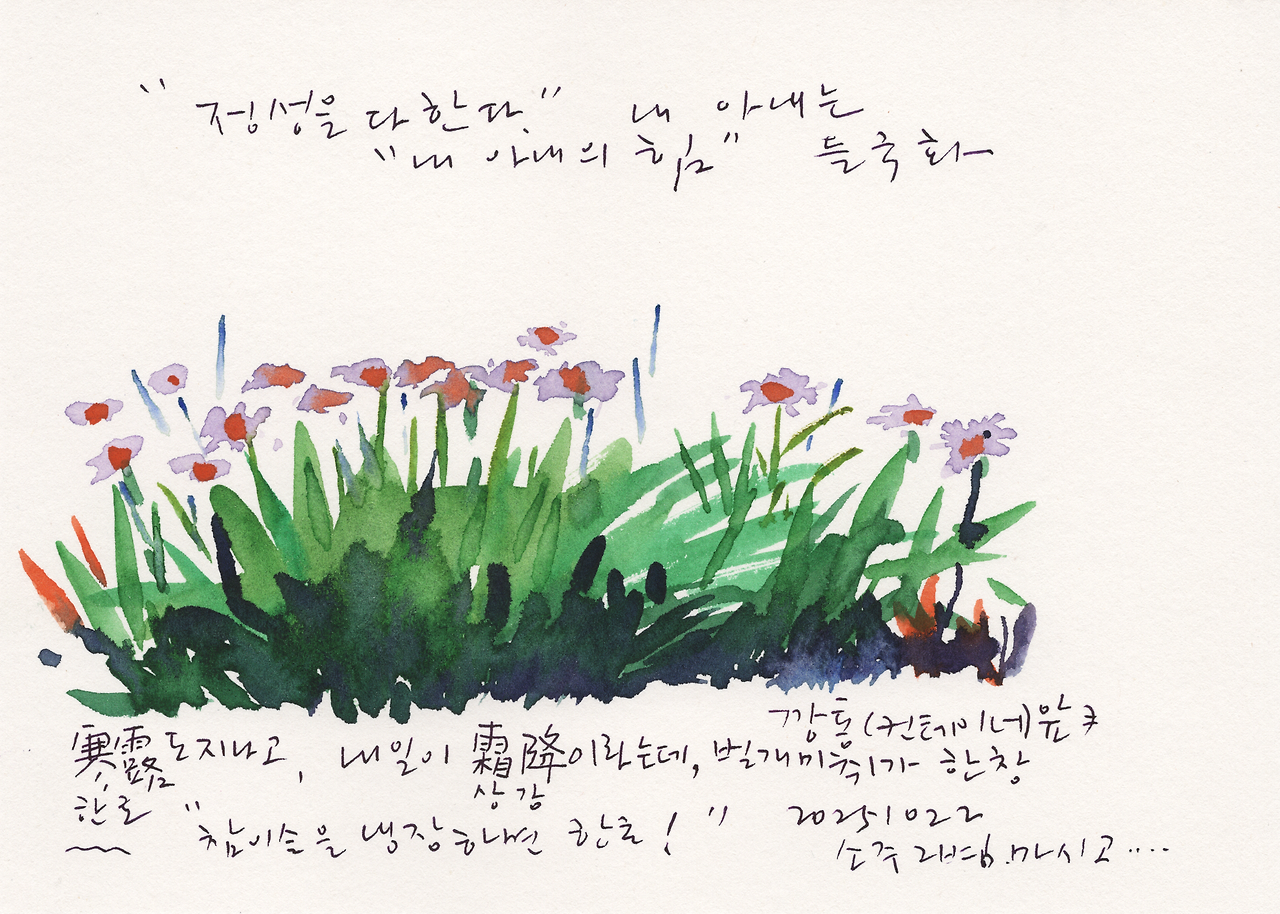 "정성을 다한다." 내 아내는
"내 아내의 힘" 들국화
깡통(컨테이너)앞
寒露도 지나고, 내일이 霜降이라는데, 벌개미취가 한창
한로 상강
"참이슬을 냉장하면 한로!" 20251022
소주 2병 마시고....